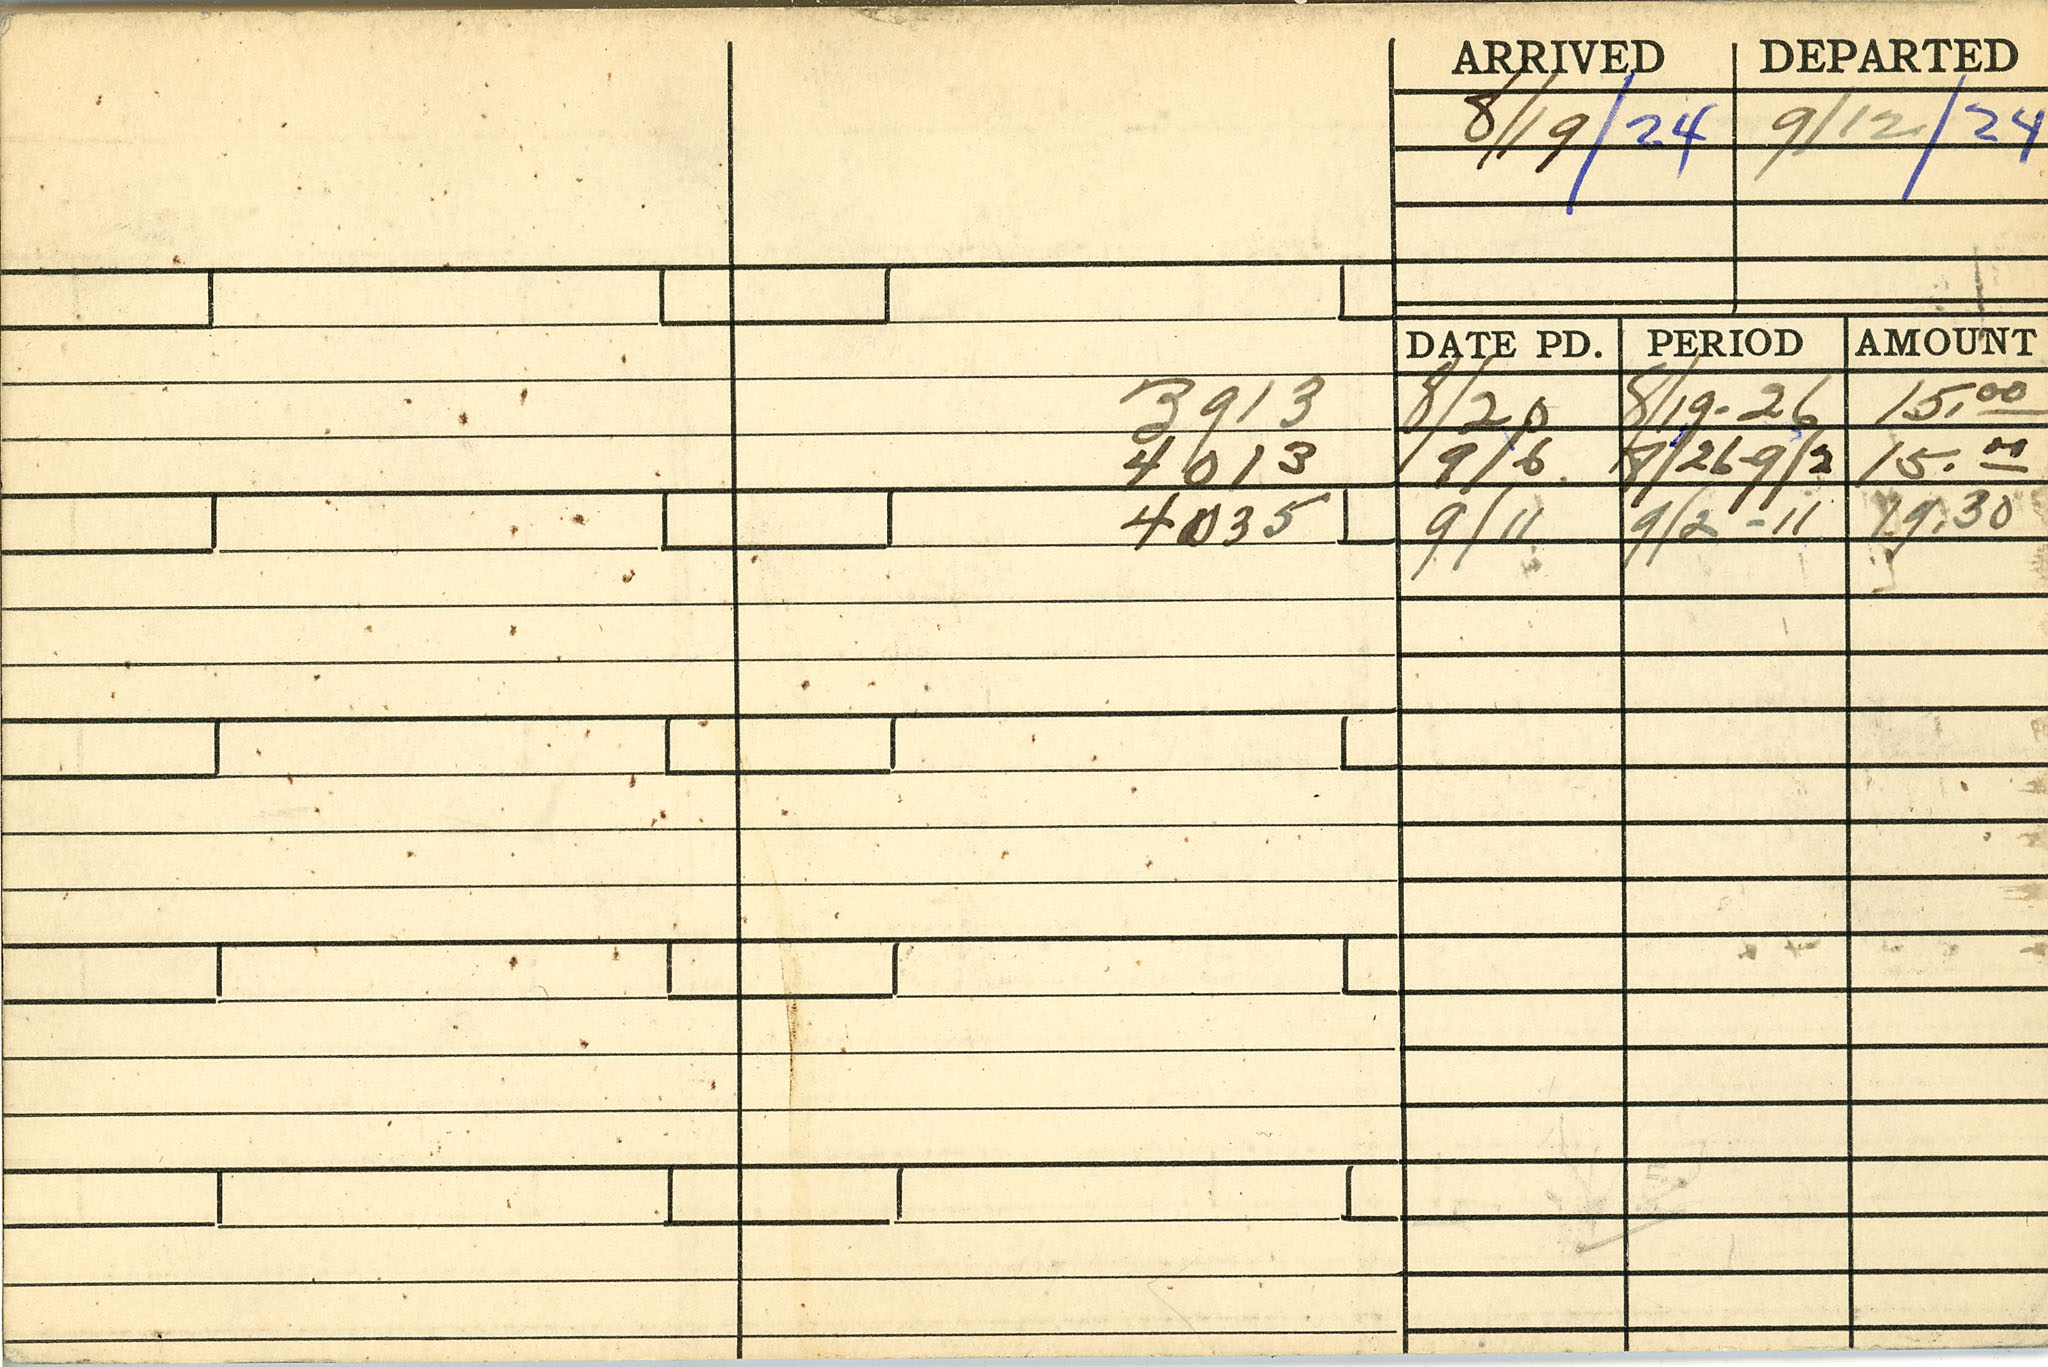 ARRIVED DEPARTED
8/19/24 9/12/24
DATE PD. PERIOD AMOUNT
3913 8/20 8/19-26 15.00
4013 9/6 8/26-9/2 15.00
4035 9/11 9/2-11 19.30